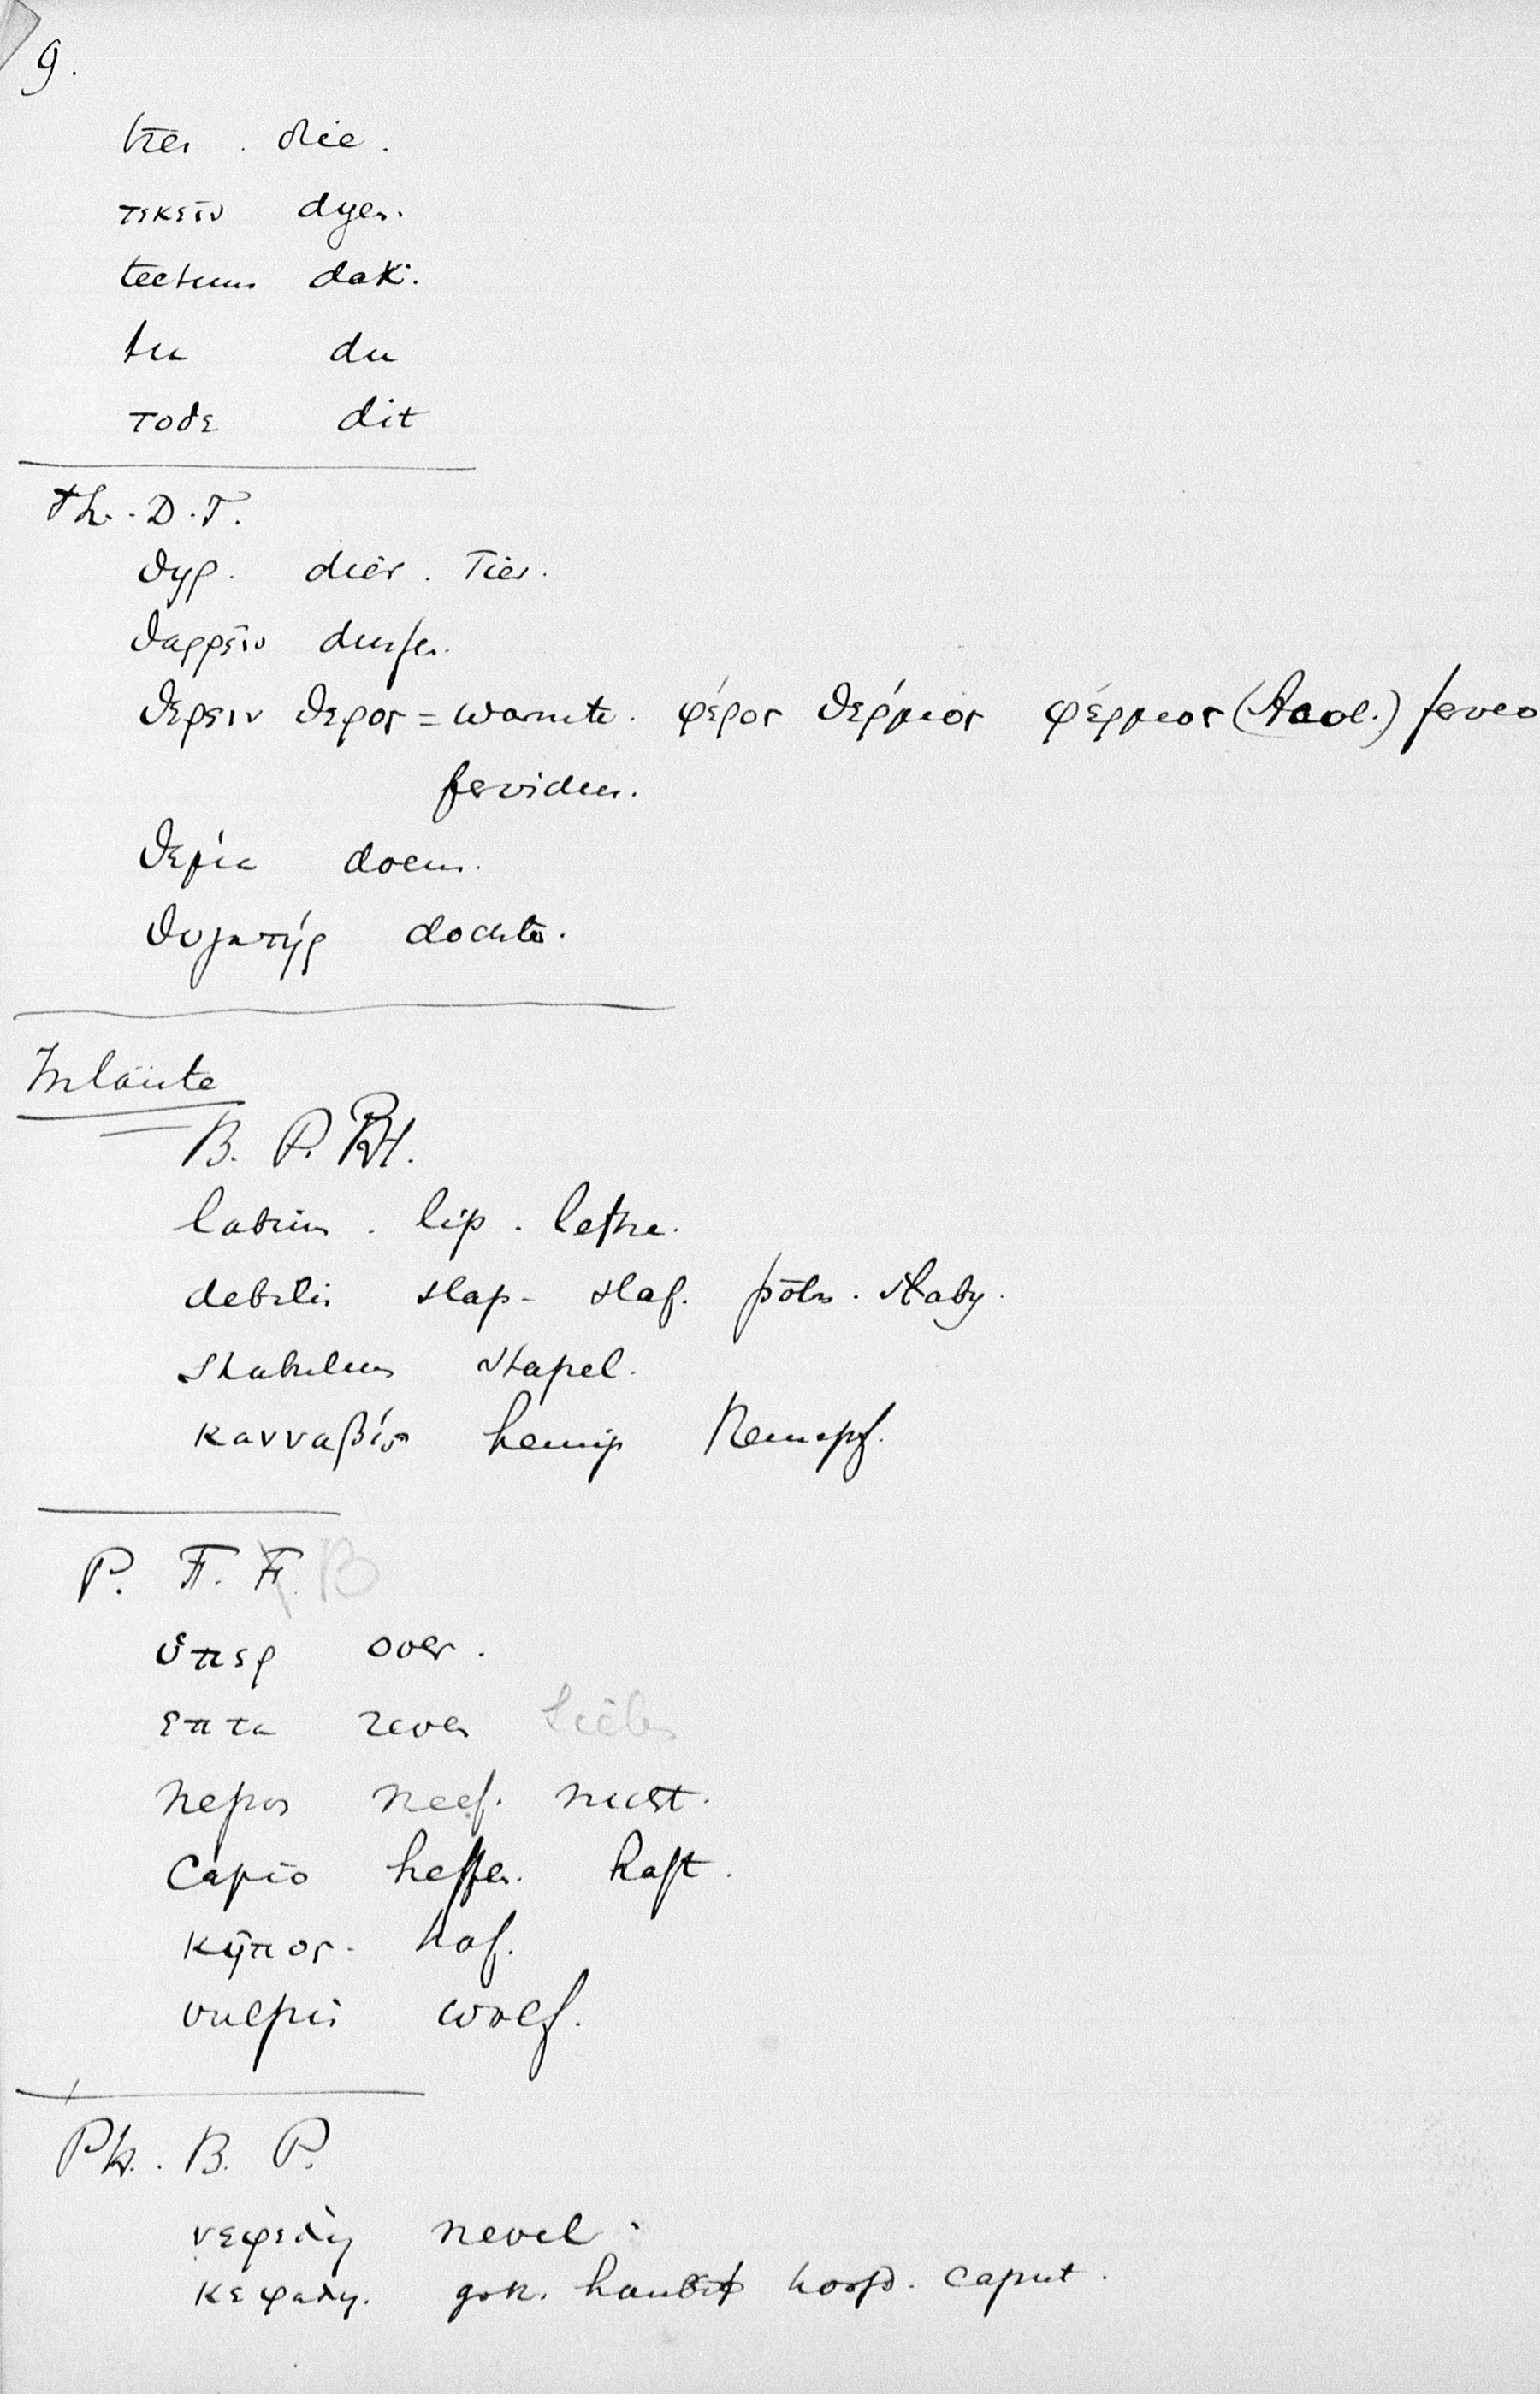 9.
tres . drie.
τεκειν dyen.
tectum dak.
tu du
τοδε dit
Th. D. T.
θηρ. dier. Tier.
θαρρειν durfen.
θερειν θερος = warmte. φέρος θέρμος φέρμος (Aeol.) ferveo
fervidus.
θεμις doem.
θυγατήρ dochter.
Inlaute
B. P. PH.
labium . lip . lefze.
debilis slap - slaf. poln. slaby.
stabulum stapel.
κανναβις hennip Hempf.
P. F. F. B
ὑπερ over.
επτα zeven Sieben
nepos neef. nicht.
Capio heffen. haft.
κηπος. hof.
vulpis wolf.
Ph. B. P.
νεφελη nevel.
κεφαλη. got. haubiþ hoofd. caput.